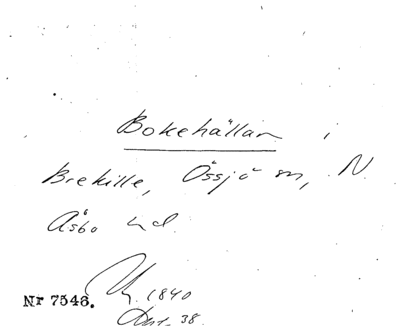 Bokehällan i
Brekille, Össjö sn, N.
Åsbo hd.
1840
Nr 7546.
38.